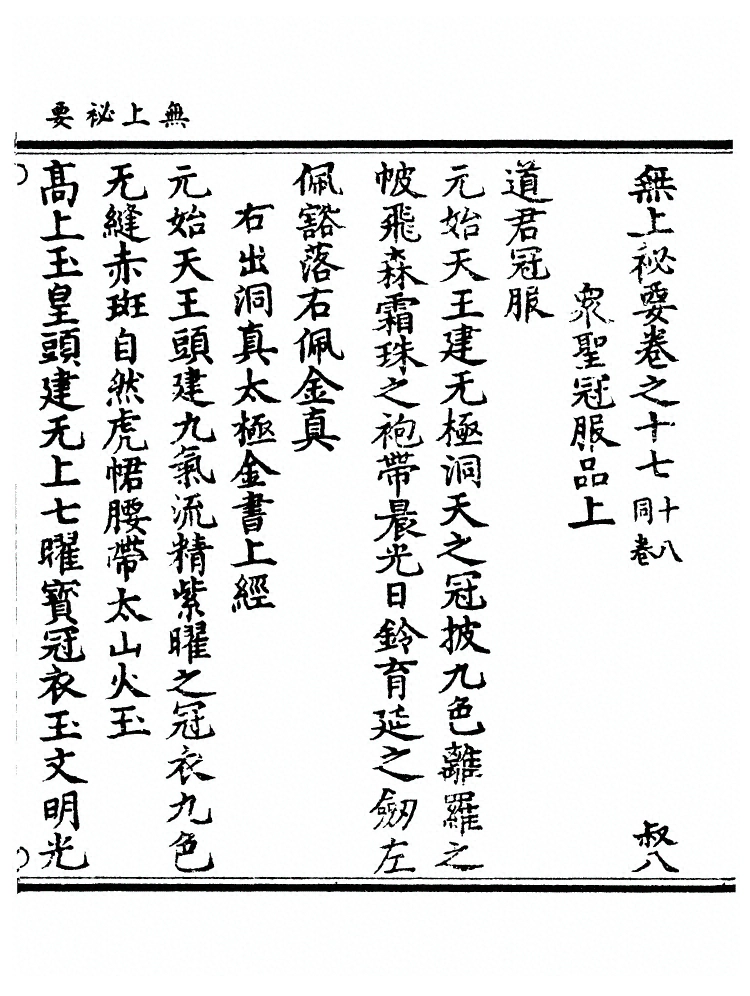 無上祕要
無上祕要卷之十七 十八同卷 叔八
衆聖冠服品上
道君冠服
元始天王建无極洞天之冠披九色離羅之
帔飛森霜珠之袍帶晨光日鈴育延之劒左
佩豁落右佩金真
右出洞真太極金書上經
元始天王頭建九氣流精紫曜之冠衣九色
无縫赤斑自然虎帬腰帶太山火玉
髙上玉皇頭建无上七曜寳冠衣玉文明光